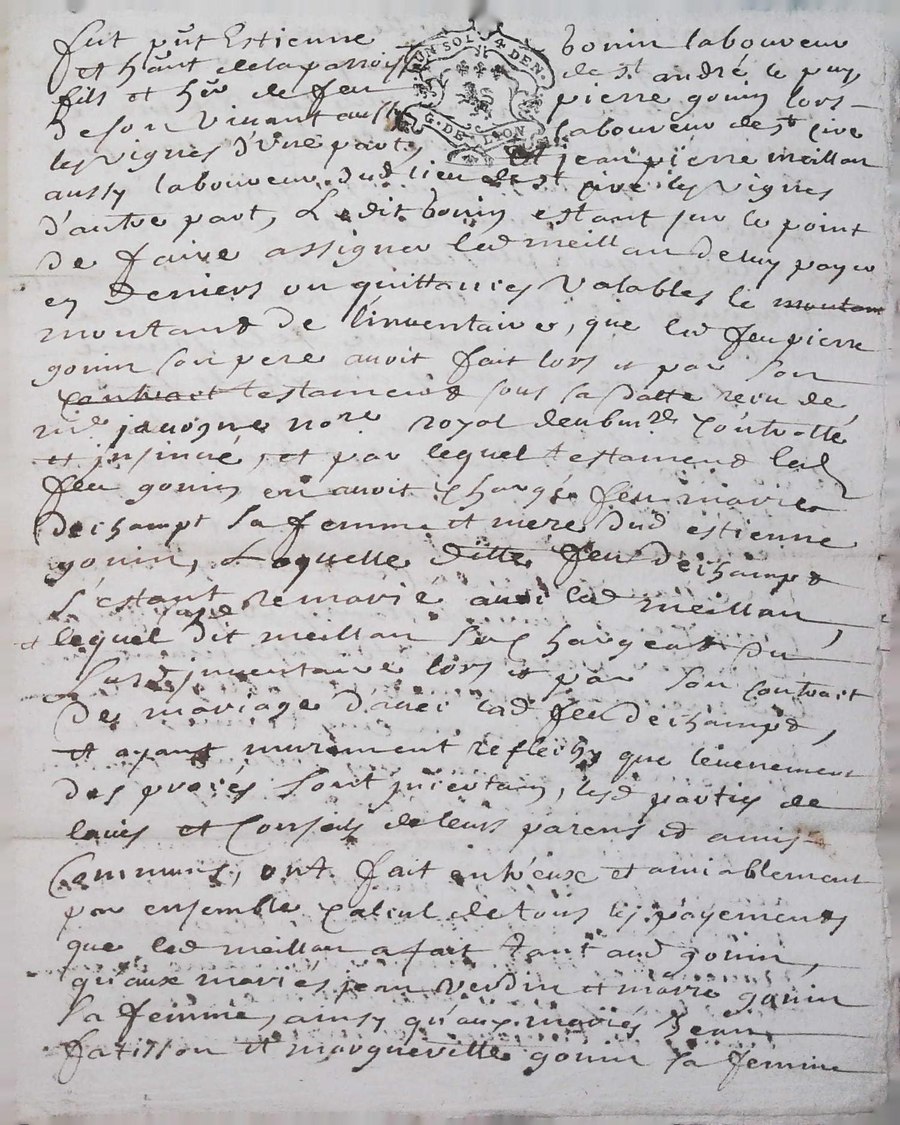 fut pnt Estienne bonin laboureur
UN SOL 4 DEN.
G. DE LION
et hant de la parroisse de St andré le puy
fils et her de feu pierre gonin lors
de son vivant aussy laboureur de St cire
les vignes d'une part, et jean pierre meillan
aussy laboureur dud lieu de St cire les vignes
d'autre part, Ledit bonin estant sur le point
de faire assigner led meillan de luy payer
en deniers ou quittances valables le montan
montand de l'inventaire, que led feu pierre
gonin son pere avoit fait lors et par son
contract testamend sous sa datte receu de
me javogne nore royal controllé
et insinué, et par lequel testamend led
feu gonin en avoit chargé feu marie
dechampt sa femme et mere dud estienne
gonin, Laquelle ditte feu dechampt
s'estant remarié avec led meillan,
lequel dit meillan se chargeat du
susd inventaire lors et par son contrait
de mariage d'avec lad feu dechampt,
et ayant murement reflechy que levenement
des procés sont incertain, lesd parties de
lavis et Conseils de leurs parens et amis
Communs, ont fait entreux et amiablement
par ensemble calcul de tous les payements
que led meillan a fait tant aud gonin,
qu'aux mariés jean verdin et marie gonin
sa femme, ainsy qu'aux mariés jean
fatisson et margueritte gonin sa femme